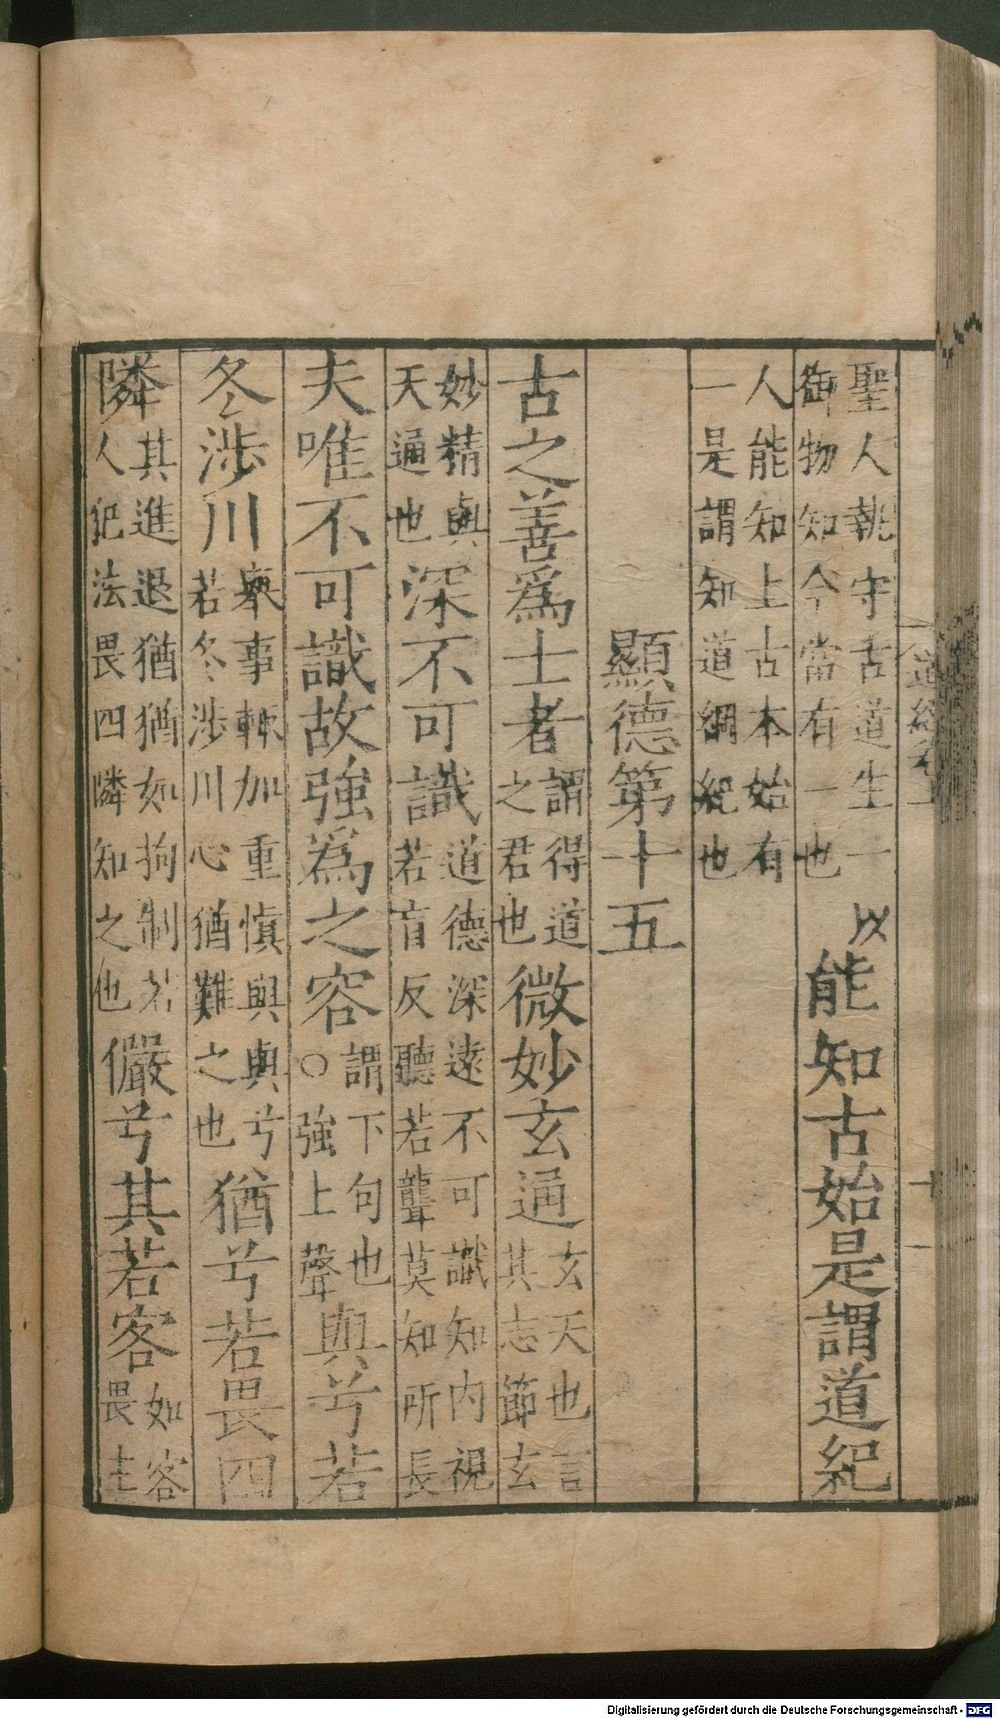 道經
十
聖人執守古道生一
御物知今當有一也
以能知古始是謂道紀
人能知上古本始有
一是謂知道綱紀也
顯德第十五
古之善爲士者
謂得道
之君也
微妙玄通
玄天也言
其志節玄
妙精與
天通也
深不可識
道德深遠不可識知内視
若盲反聽若聾莫知所長
夫唯不可識故強爲之容
謂下句也
○強上聲
與兮若
冬涉川
舉事輒加重慎與與兮
若冬涉川心猶難之也
猶兮若畏四
隣
其進退猶猶如拘制若
人犯法畏四隣知之也
儼兮其若客
如客
畏主
Digitalisierung gefördert durch die Deutsche Forschungsgemeinschaft - DFG